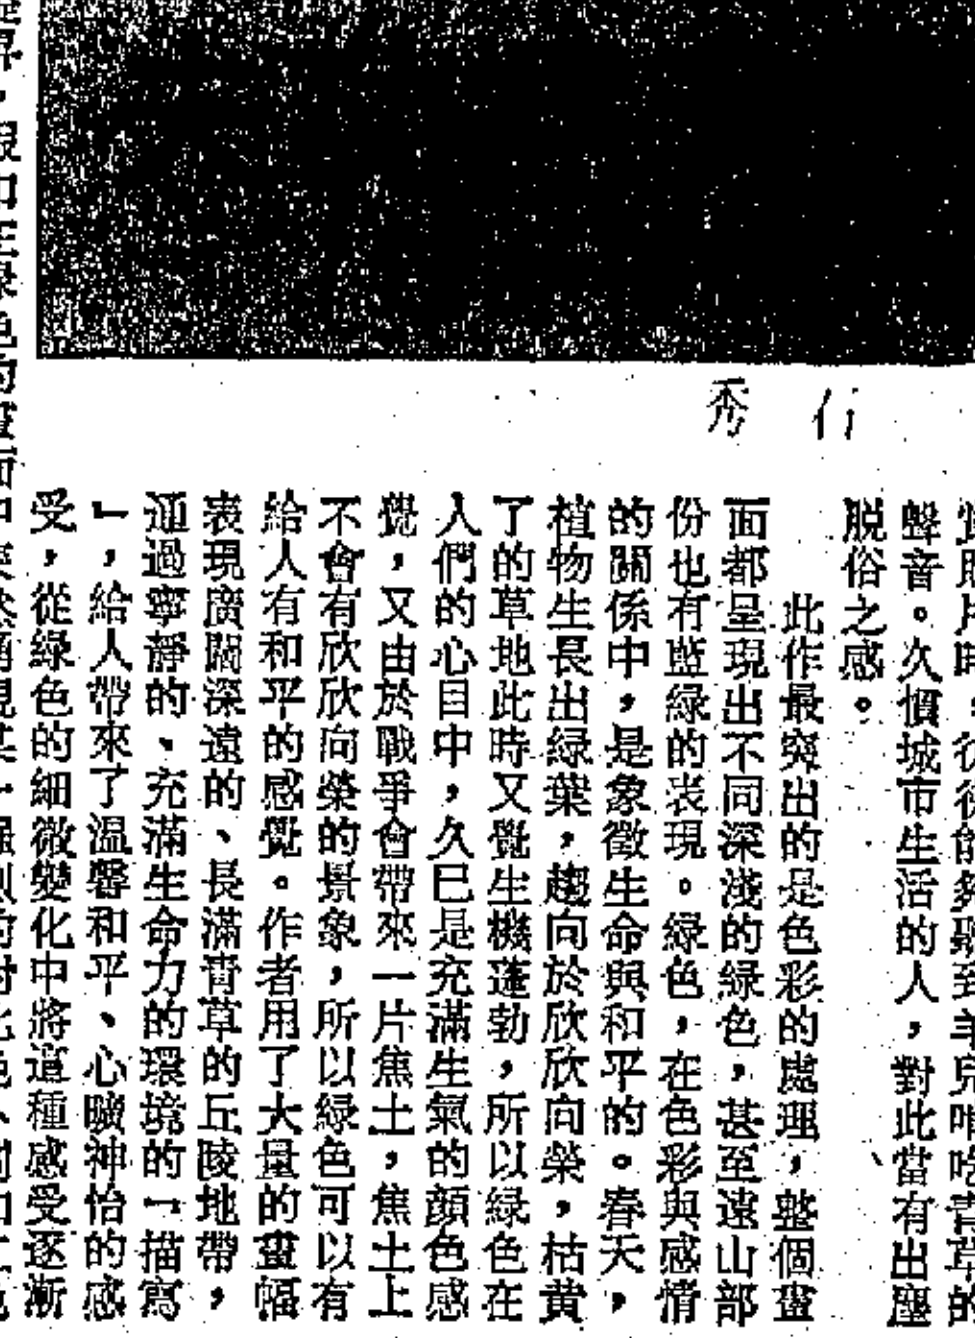 秀
聲音。久慣城市生活的人，對此當有出塵
脫俗之感。
此作最突出的是色彩的處理，整個畫
面都呈現出不同深淺的綠色，甚至遠山部
份也有藍綠的表現。綠色，在色彩與感情
的關係中，是象徵生命與和平的。春天，
植物生長出綠葉，趨向於欣欣向榮，枯黃
了的草地此時又覺生機蓬勃，所以綠色在
人們的心目中，久已是充滿生氣的顏色感
覺，又由於戰爭會帶來一片焦土，焦土上
不會有欣欣向榮的景象，所以綠色可以有
給人有和平的感覺。作者用了大量的畫幅
表現廣闊深遠的、長滿青草的丘陵地帶，
通過寧靜的、充滿生命力的環境的「描寫
」，給人帶來了溫馨和平、心曠神怡的感
受，從綠色的細微變化中將這種感受逐漸